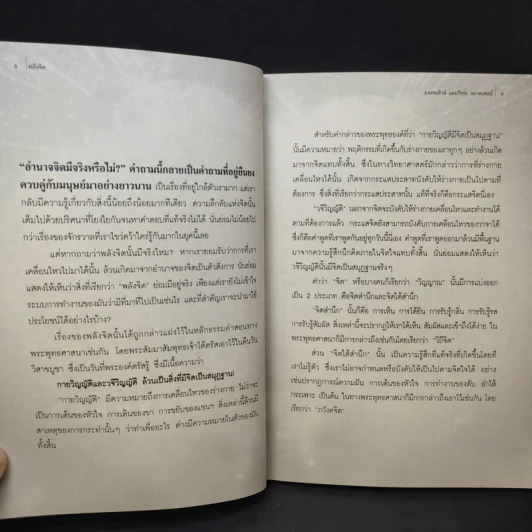 8 | พลังจิต
"อำนาจจิตมีจริงหรือไม่?" คำถามนี้กลายเป็นคำถามที่อยู่ยืนยง
ควบคู่กับมนุษย์มาอย่างยาวนาน เป็นเรื่องที่อยู่ใกล้ตัวเรามาก แต่เรา
กลับมีความรู้เกี่ยวกับสิ่งนี้น้อยถึงน้อยมากทีเดียว ความลึกลับแห่งจิตนั้น
เต็มไปด้วยปริศนาที่โยงใยกันจนหาคำตอบที่แท้จริงไม่ได้ นั่นย่อมไม่น้อยไป
กว่าเรื่องของจักรวาลที่เราไขว่คว้าใคร่รู้กันมากในยุคนี้เลย
แต่หากถามว่าพลังจิตนั้นมีจริงไหม? หากเรายอมรับว่าการที่เรา
เคลื่อนไหวไปมาได้นั้น ล้วนเกิดมาจากอำนาจของจิตเป็นตัวสั่งการ นั่นย่อม
แสดงให้เห็นว่าสิ่งที่เรียกว่า "พลังจิต" ย่อมมีอยู่จริง เพียงแต่เรายังไม่เข้าใจ
ระบบการทำงานของมันว่ามีที่มาที่ไปเป็นเช่นไร และที่สำคัญเราจะนำมาใช้
ประโยชน์ได้อย่างไรบ้าง?
เรื่องของพลังจิตนั้นได้ถูกกล่าวแฝงไว้ในหลักธรรมคำสอนทาง
พระพุทธศาสนาเช่นกัน โดยพระสัมมาสัมพุทธเจ้าได้ตรัสเอาไว้ในคืนวัน
วิสาขบูชา ซึ่งเป็นวันที่พระองค์ตรัสรู้ ซึ่งมีเนื้อความว่า
กายวิญญัติและวจีวิญญัติ ล้วนเป็นสิ่งที่มีจิตเป็นสมุฏฐาน!
"กายวิญญัติ" มีความหมายถึงการเคลื่อนไหวของร่างกาย ไม่ว่าจะ
เป็นการเต้นของหัวใจ การเดินของขา การขยับของแขนฯ สิ่งเหล่านี้ล้วนมี
สาเหตุของการกระทำนั้นๆ ว่าทำเพื่ออะไร ต่างมีความหมายในตัวของมัน
ทั้งสิ้น
9
สำหรับคำกล่าวของพระพุทธองค์ที่ว่า "กายวิญญัติมีจิตเป็นสมุฏฐาน"
นั้นมีความหมายว่า พฤติกรรมที่เกิดขึ้นกับร่างกายของเราทุกๆ อย่างล้วนเกิด
มาจากจิตแทบทั้งสิ้น ซึ่งในทางวิทยาศาสตร์มักกล่าวว่าการที่ร่างกาย
เคลื่อนไหวได้นั้น เกิดจากกระแสประสาทบังคับให้ร่างกายเป็นไปตามที่
ต้องการ ซึ่งสิ่งที่เรียกว่ากระแสประสาทนั้น แท้ที่จริงก็คือกระแสจิตนั่นเอง
"วจีวิญญัติ" นอกจากจิตจะบังคับให้ร่างกายเคลื่อนไหวและทำงานได้
ตามที่ต้องการแล้ว กระแสจิตยังสามารถบังคับการเคลื่อนไหวของวาจาได้
ซึ่งก็คือคำพูดที่เราพูดกันอยู่ทุกวันนี้นี่เอง คำพูดที่เราพูดออกมาล้วนมีพื้นฐาน
มาจากความรู้สึกนึกคิดภายในจิตใจแทบทั้งสิ้น นั่นย่อมแสดงให้เห็นว่า
วจีวิญญัตินั้นมีจิตเป็นสมุฏฐานจริงๆ
คำว่า "จิต" หรือบางคนก็เรียกว่า "วิญญาณ" นั้นมีการแบ่งออก
เป็น 2 ประเภท คือจิตสำนึกและจิตใต้สำนึก
"จิตสำนึก" นั้นก็คือ การเห็น การได้ยิน การรับรู้กลิ่น การรับรู้รส
การรับรู้สัมผัส สิ่งเหล่านี้จะปรากฏให้เราได้เห็น สัมผัสและเข้าถึงได้ง่าย ใน
พระพุทธศาสนาก็มีการกล่าวถึงเช่นกันโดยเรียกว่า "วิถีจิต"
ส่วน "จิตใต้สำนึก" นั้น เป็นความรู้สึกที่แท้จริงที่เกิดขึ้นโดยที่
เราไม่รู้ตัว ซึ่งเราไม่อาจกำหนดหรือบังคับให้เป็นไปตามจิตใจได้ อย่าง
เช่นปรากฏการณ์ความฝัน การเต้นของหัวใจ การทำงานของตับ ลำไส้
กระเพาะ เป็นต้น ในทางพระพุทธศาสนาก็มีการกล่าวถึงเอาไว้เช่นกัน โดย
เรียกว่า "ภวังคจิต"